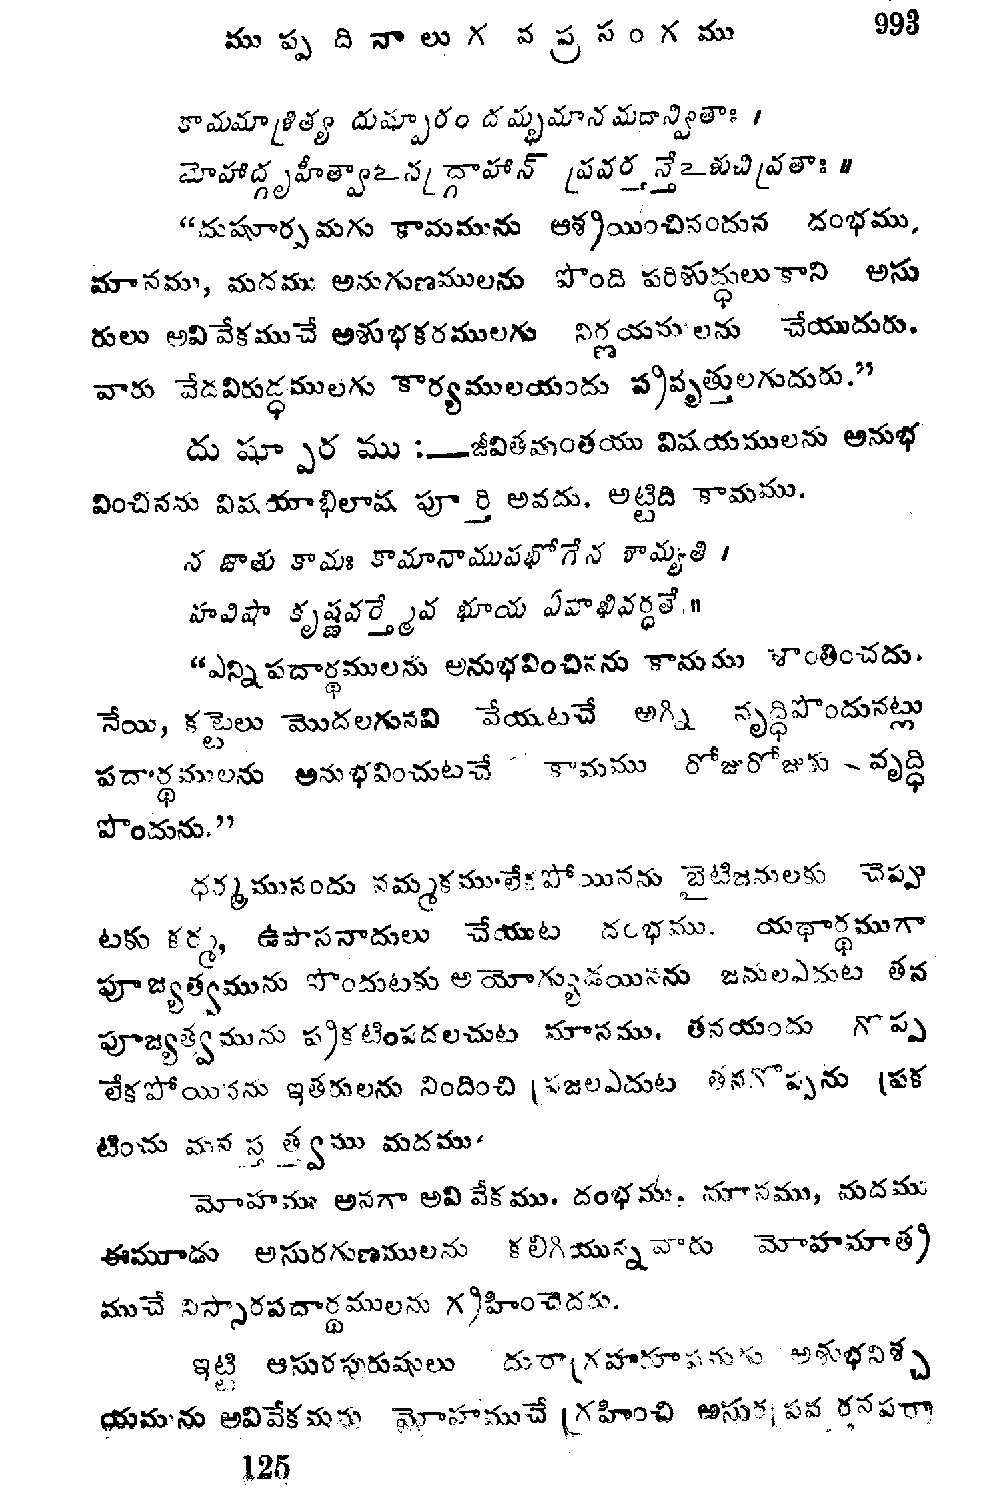 ముప్పదినాలుగవప్రసంగము 993
కామమాశ్రిత్య దుష్పూరం దమ్భమానమదాన్వితాః ।
మోహాద్గృహీత్వాఽసద్గ్రాహాన్ ప్రవర్తన్తేఽశుచివ్రతాః ॥
“దుష్పూరమగు కామమును ఆశ్రయించినందున దంభము,
మానము, మదము అనుగుణములను పొంది పరిశుద్ధులుకాని అసు
రులు అవివేకముచే అశుభకరములగు నిర్ణయములను చేయుదురు.
వారు వేదవిరుద్ధములగు కార్యములయందు ప్రవృత్తులగుదురు.”
దుష్పూరము :—జీవితమంతయు విషయములను అనుభ
వించినను విషయాభిలాష పూర్తి అవదు. అట్టిది కామము.
న జాతు కామః కామానాముపభోగేన శామ్యతి ।
హవిషా కృష్ణవర్త్మేవ భూయ ఏవాభివర్ధతే ॥
“ఎన్నిపదార్థములను అనుభవించినను కామము శాంతించదు.
నేయి, కట్టెలు మొదలగునవి వేయుటచే అగ్ని వృద్ధిపొందునట్లు
పదార్థములను అనుభవించుటచే కామము రోజురోజుకు వృద్ధి
పొందును.”
ధర్మమునందు నమ్మకములేకపోయినను బైటిజనులకు చెప్పు
టకు కర్మ, ఉపాసనాదులు చేయుట దంభము. యథార్థముగా
పూజ్యత్వమును పొందుటకు అయోగ్యుడయినను జనులఎదుట తన
పూజ్యత్వమును ప్రకటింపదలచుట మానము. తనయందు గొప్ప
లేకపోయినను ఇతరులను నిందించి ప్రజలఎదుట తనగొప్పను ప్రక
టించు మనస్తత్త్వము మదము.
మోహము అనగా అవివేకము. దంభము, మానము, మదము
ఈమూడు అసురగుణములను కలిగియున్నవారు మోహమాత్ర
ముచే నిస్సారపదార్థములను గ్రహించెదరు.
ఇట్టి ఆసురపురుషులు దురాగ్రహరూపమగు అశుభనిశ్చ
యమును అవివేకమను మోహముచే గ్రహించి అసుర
125